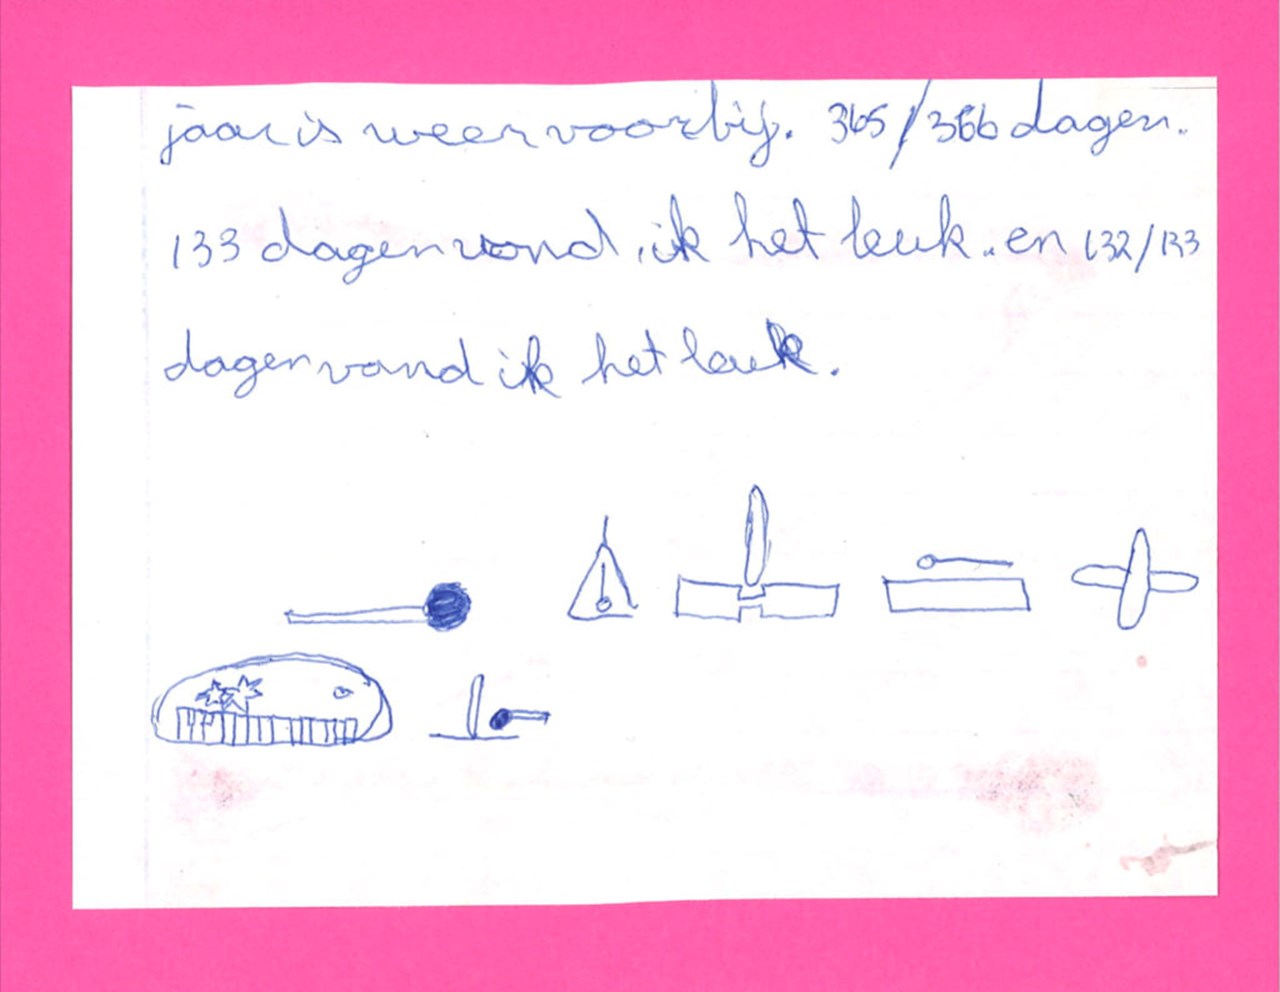 jaar is weer voorbij. 365/366 dagen.
133 dagen vond ik het leuk. en 132/133
dagen vond ik het leuk.